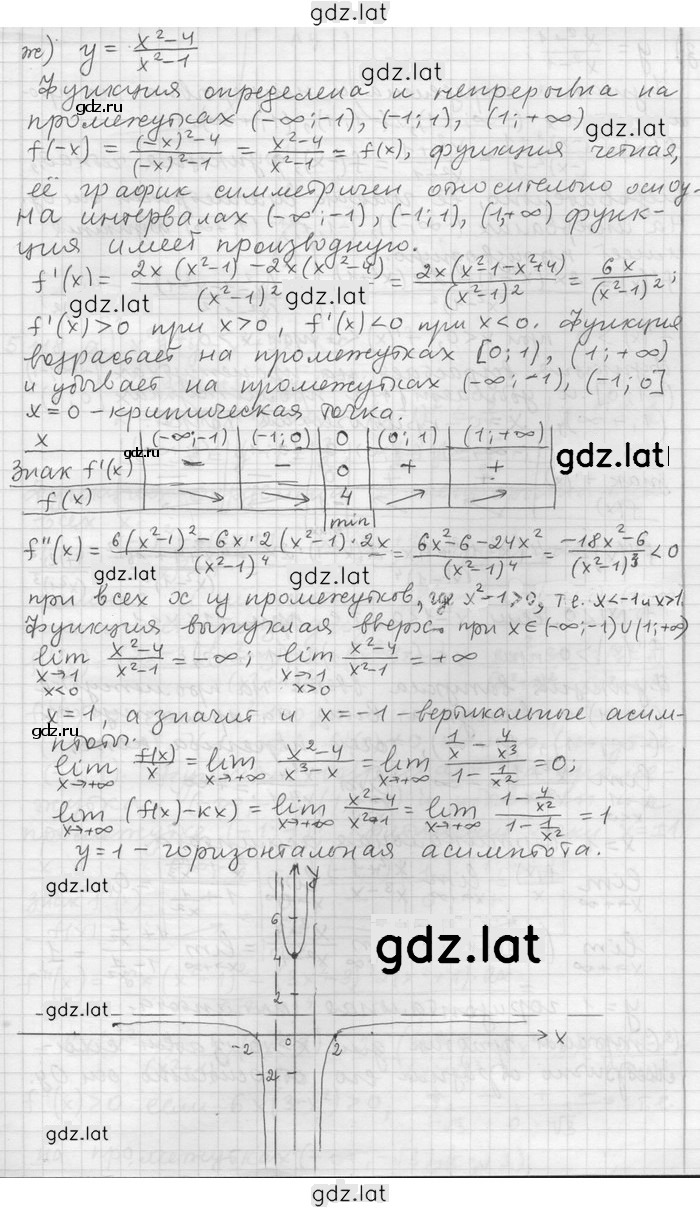 gdz.lat
ж) y = (x²-4)/(x²-1)
gdz.lat
gdz.ru
Функция определена и непрерывна на
промежутках (-∞;-1), (-1;1), (1;+∞)
gdz.lat
f(-x) = ((-x)²-4)/((-x)²-1) = (x²-4)/(x²-1) = f(x), функция четная,
её график симметричен относительно оси оу.
на интервалах (-∞;-1), (-1;1), (1;+∞) функ-
ция имеет производную.
f'(x) = (2x(x²-1)-2x(x²-4))/(x²-1)² = (2x(x²-1-x²+4))/(x²-1)² = 6x/(x²-1)²;
gdz.lat gdz.lat
f'(x)>0 при x>0, f'(x)<0 при x<0. Функция
возрастает на промежутках [0;1), (1;+∞)
и убывает на промежутках (-∞;-1), (-1;0]
x=0 - критическая точка.
x | (-∞;-1) | (-1;0) | 0 | (0;1) | (1;+∞)
gdz.lat
Знак f'(x) | - | - | 0 | + | +
f(x) | ↘ | ↘ | 4 | ↗ | ↗
min
f''(x) = (6(x²-1)²-6x·2(x²-1)·2x)/(x²-1)⁴ = (6x²-6-24x²)/(x²-1)⁴ = (-18x²-6)/(x²-1)³ < 0
gdz.lat gdz.lat
при всех x из промежутков, где x²-1>0, т.е. x<-1 и x>1
Функция выпуклая вверх при x∈(-∞;-1)∪(1;+∞)
lim x→1 x<0 (x²-4)/(x²-1) = -∞; lim x→1 x>0 (x²-4)/(x²-1) = +∞
x=1, а значит и x=-1 - вертикальные асим-
gdz.ru
птоты.
lim x→+∞ f(x)/x = lim x→+∞ (x²-4)/(x³-x) = lim x→+∞ (1/x - 4/x³)/(1 - 1/x²) = 0;
lim x→+∞ (f(x)-кx) = lim x→+∞ (x²-4)/(x²-1) = lim x→+∞ (1 - 4/x²)/(1 - 1/x²) = 1
y=1 - горизонтальная асимптота.
gdz.lat
y
6
gdz.lat
4
2
gdz.lat
-2 0 2 x
-2
gdz.lat
gdz.lat